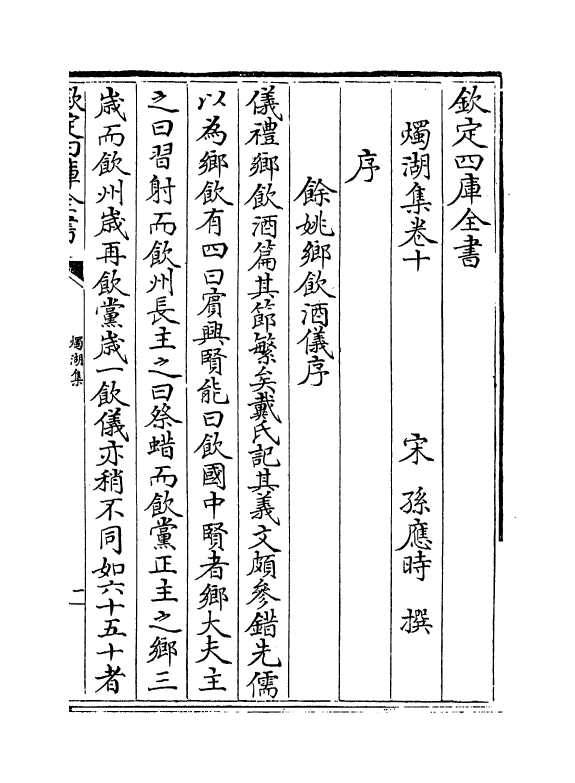 欽定四庫全書
燭湖集卷十
宋 孫應時 撰
序
餘姚鄉飲酒儀序
儀禮鄉飲酒篇其節繁矣戴氏記其義文頗參錯先儒
以為鄉飲有四曰賔興賢能曰飲國中賢者鄉大夫主
之曰習射而飲州長主之曰祭蜡而飲黨正主之鄉三
歳而飲州歳再飲黨歳一飲儀亦稍不同如六十五十者
欽定四庫全書
燭湖集